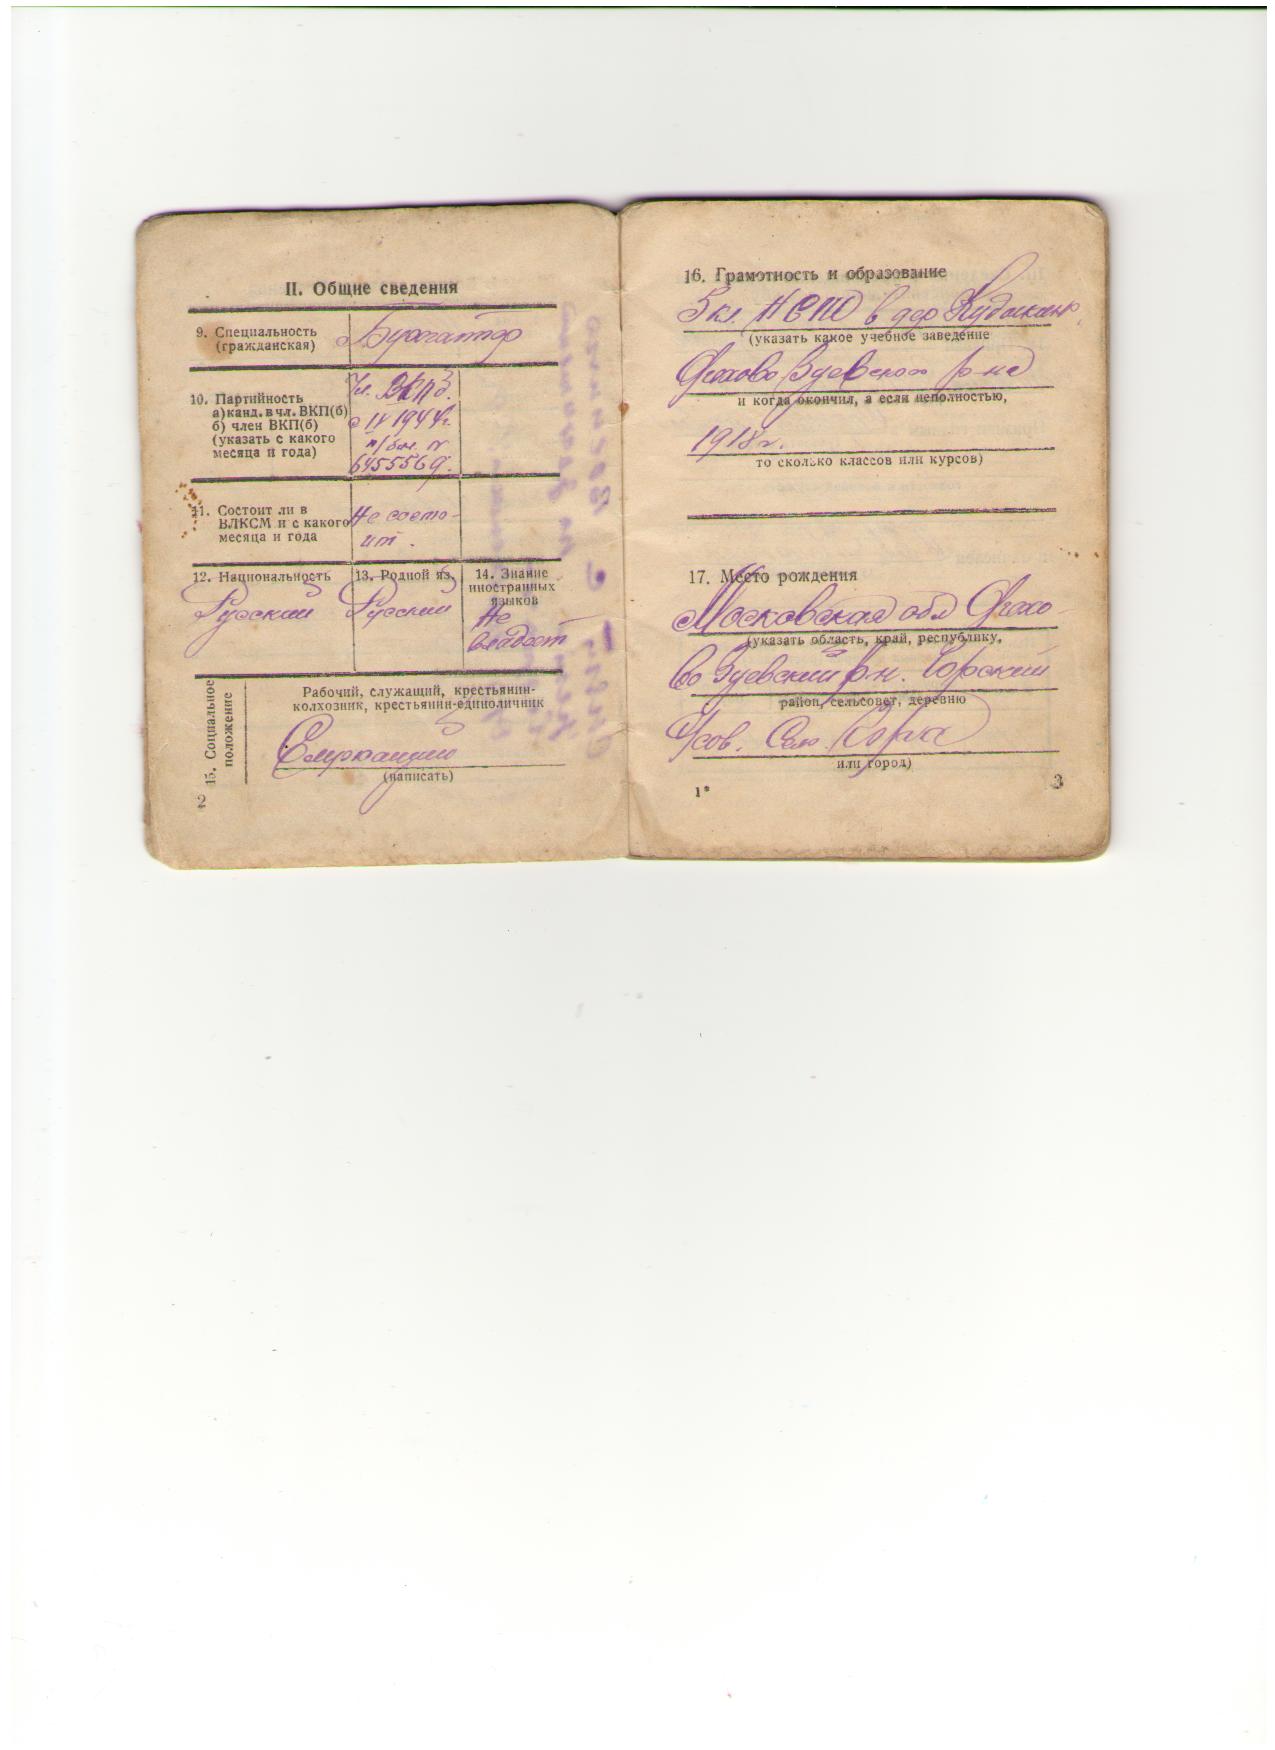 II. Общие сведения
9. Специальность
(гражданская)
Бухгалтер
10. Партийность
а) канд. в чл. ВКП(б)
б) член ВКП(б)
(указать с какого
месяца и года)
Чл. ВКПб.
с IV 1944 г.
п/бил. №
6455569.
11. Состоит ли в
ВЛКСМ и с какого
месяца и года
Не состо-
ит.
12. Национальность
Русский
13. Родной яз.
Русский
14. Знание
иностранных
языков
Не
владеет
15. Социальное
положение
Рабочий, служащий, крестьянин-
колхозник, крестьянин-единоличник
Служащий
(написать)
2
16. Грамотность и образование
5 кл. НСШ в дер
(указать какое учебное заведение
Орехово Зуевского р-на
и когда окончил, а если неполностью,
1918 г.
то сколько классов или курсов)
17. Место рождения
Московская обл Орехо-
(указать область, край, республику,
во Зуевский р-н. Горский
район, сельсовет, деревню
с/сов. Село Гора
или город)
1*
3